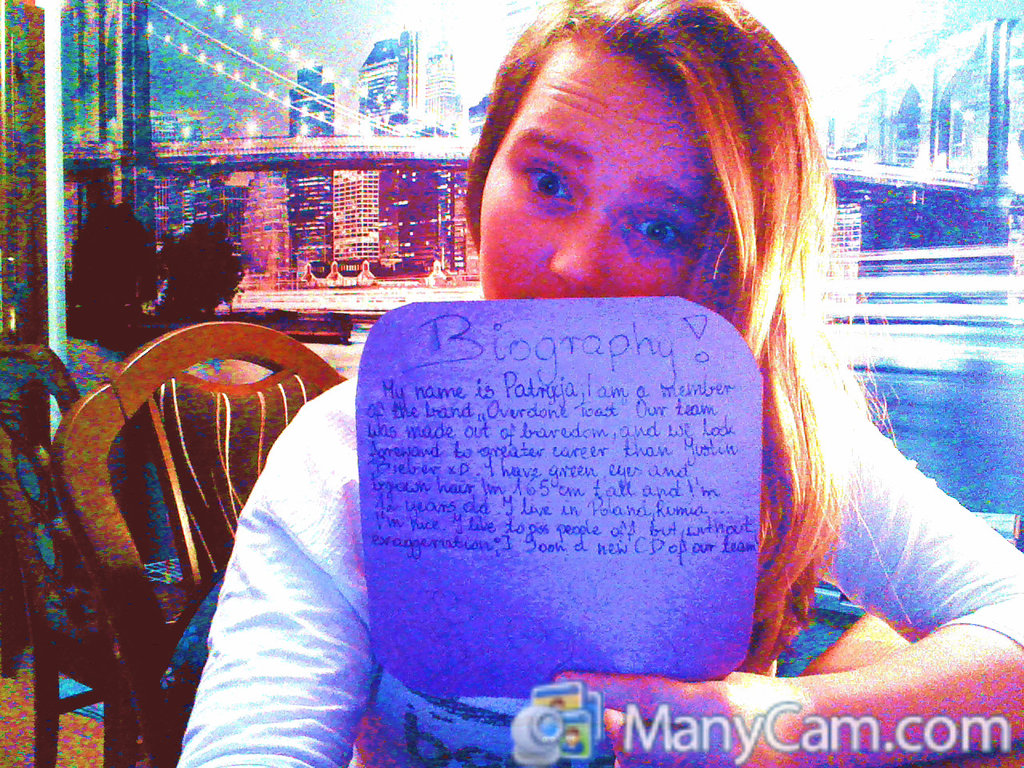 Biography!
My name is Patrycja, I am a member
of the band „Overdone Toast" Our team
was made out of boredom, and we look
forward to greater career than Justin
Bieber xD. I have green eyes and
brown hair I'm 165 cm tall and I'm
12 years old I live in Poland, Rumia...
I'm nice. I live to piss people off but without
exaggeration; I Soon a new CD of our team
ManyCam.com